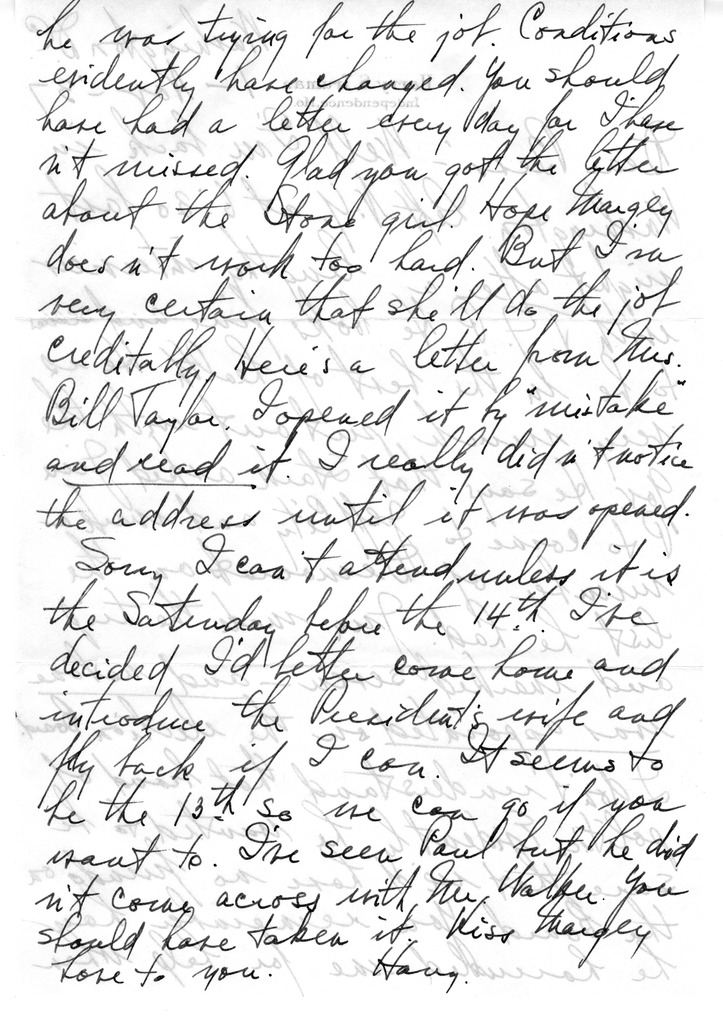 he was trying for the job. Conditions
evidently have changed. You should
have had a letter every day for I have
n't missed. Glad you got the letter
about the Stone girl. Hope Margey
does n't work too hard. But I'm
very certain that she'll do the job
creditally. Here's a letter from Mrs.
Bill Taylor. I opened it by "mistake"
and read it. I really did n't notice
the address until it was opened.
Sorry I can't attend unless it is
the Saturday before the 14th. I've
decided I'd better come home and
introduce the President's wife and
fly back if I can. It seems to
be the 13th so we can go if you
want to. I've seen Paul but he did
n't come across with Mr. Walker. You
should have taken it. Kiss Margey
Love to you. Harry.